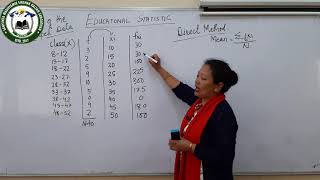 of the
EDUCATIONAL STATISTIC
Data
Direct Method
Mean = Σfxi / N
class(X) f xi fxi
8-12 3 10 30
13-17 2 15 30
18-22 5 20 100
23-27 9 25 225
28-32 10 30 300
33-37 5 35 175
38-42 0 40 0
43-47 4 45 180
48-52 2 50 100
N=40